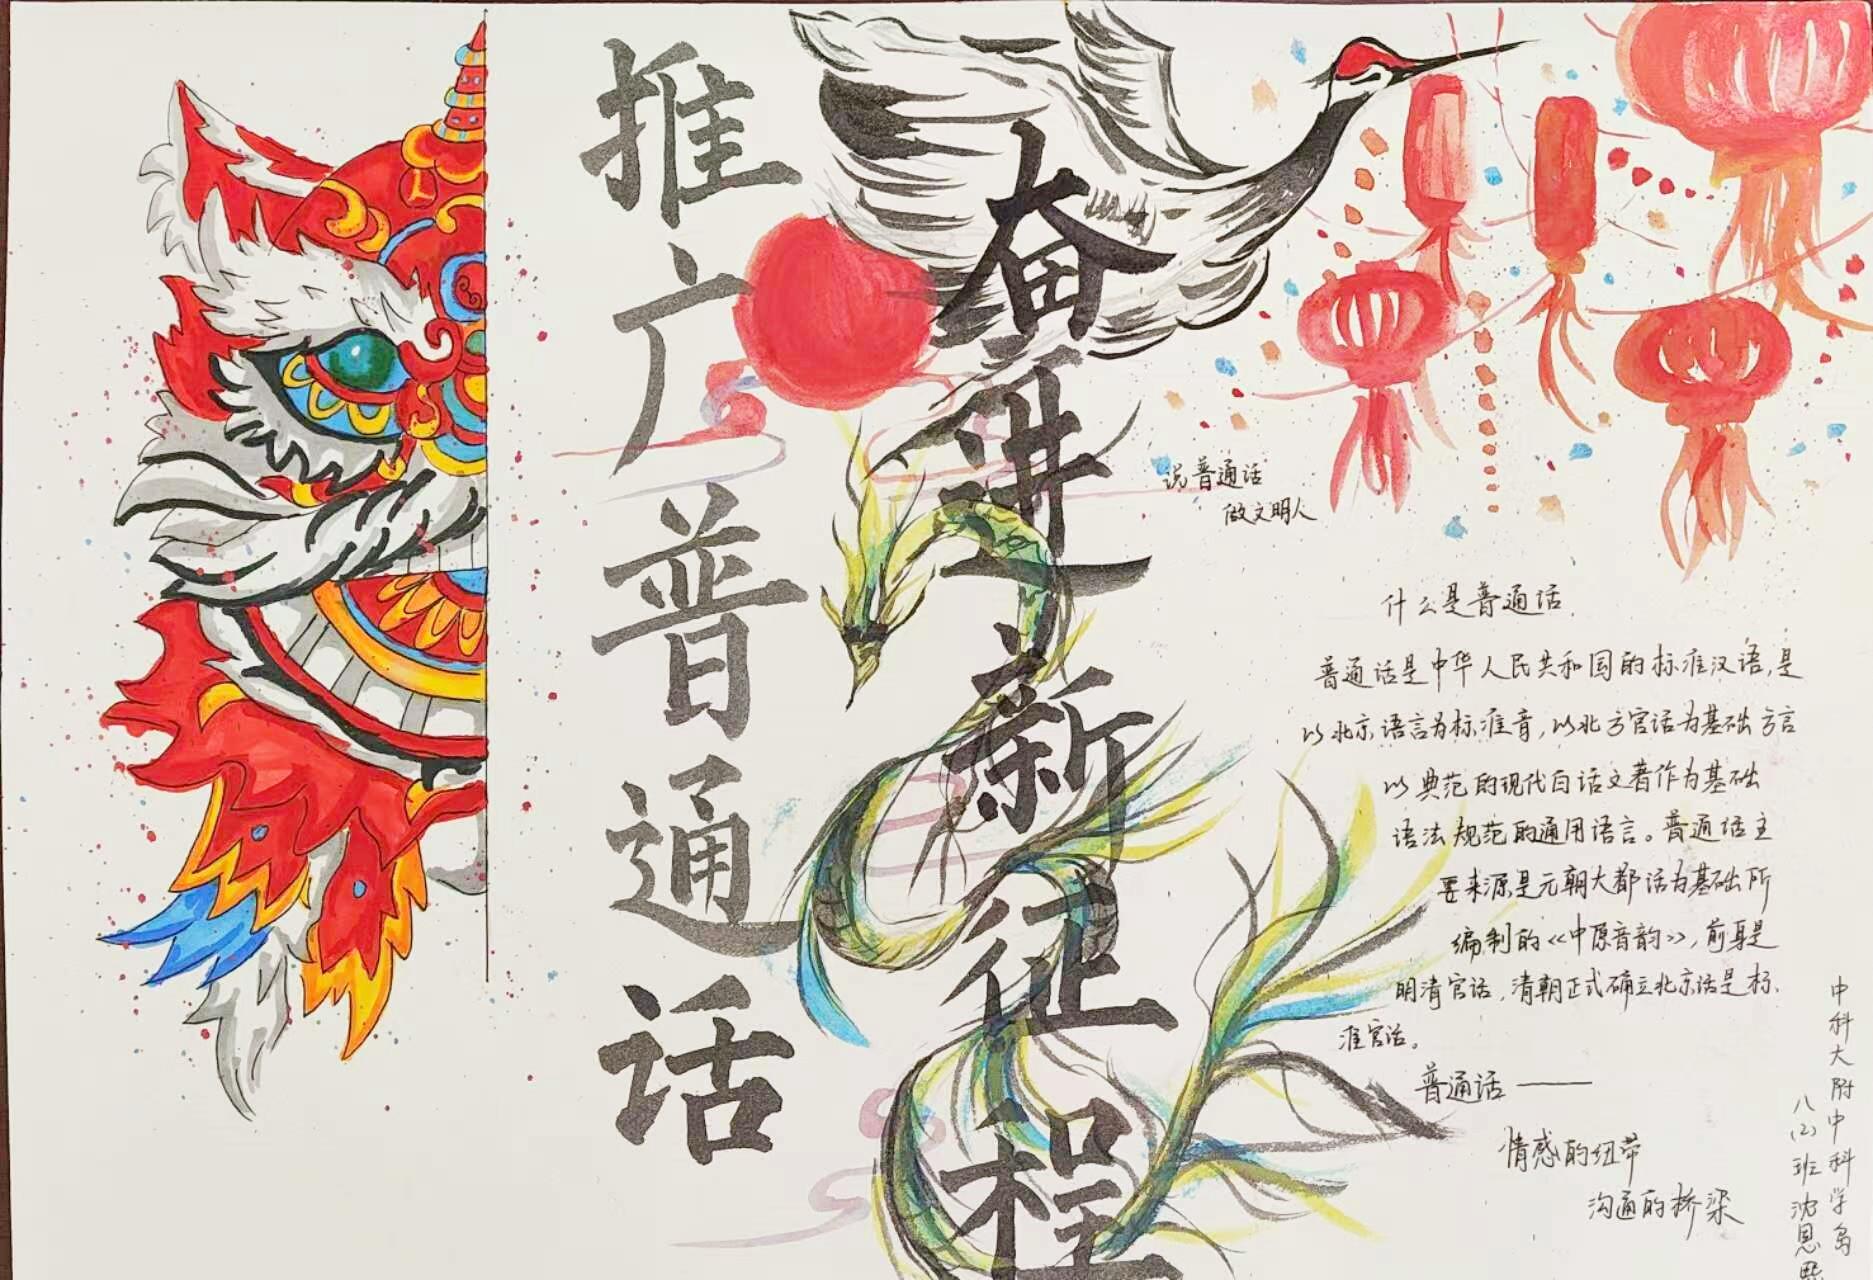 推广普通话
奋进新征程
说普通话
做文明人
什么是普通话
普通话是中华人民共和国的标准汉语,是
以北京语言为标准音,以北方官话为基础方言
以典范的现代白话文著作为基础
语法规范的通用语言。普通话主
要来源是元朝大都话为基础所
编制的《中原音韵》,前身是
明清官话,清朝正式确立北京话是标
准官话。
普通话——
情感的纽带
沟通的桥梁
中科大附中科学岛
八(2)班沈恩熙